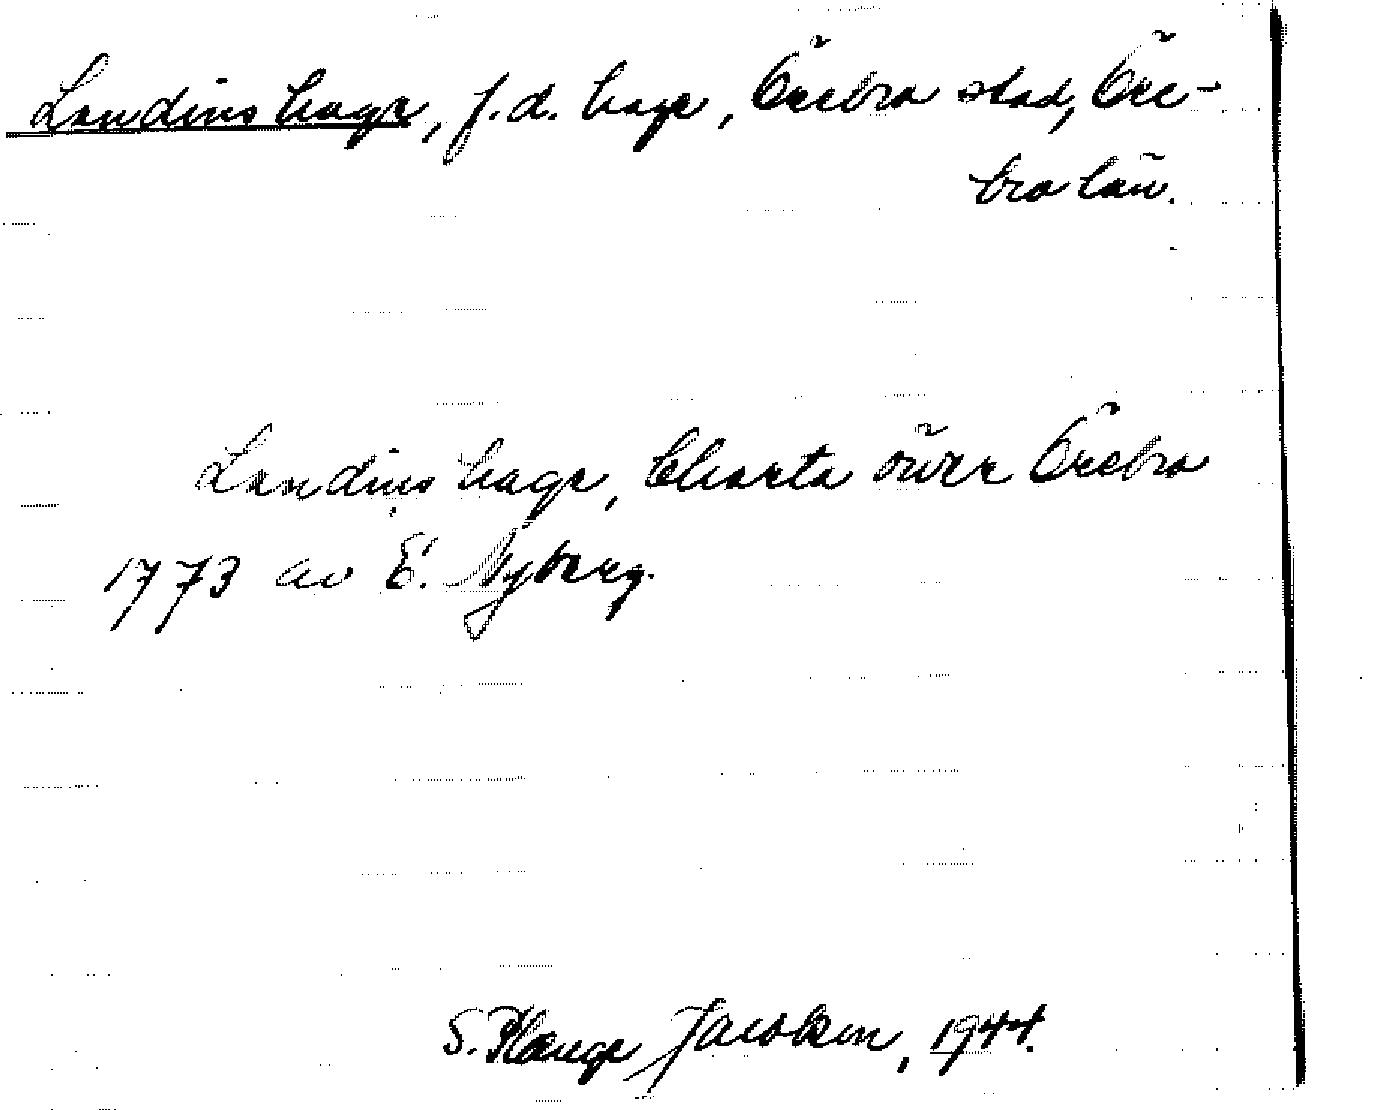 Landins hage, f.d. hage, Örebro stad, Öre-
bro län.
Landins hage, Charta över Örebro
1773 av E. Nyberg.
S. Plænge Jacobson, 1944.